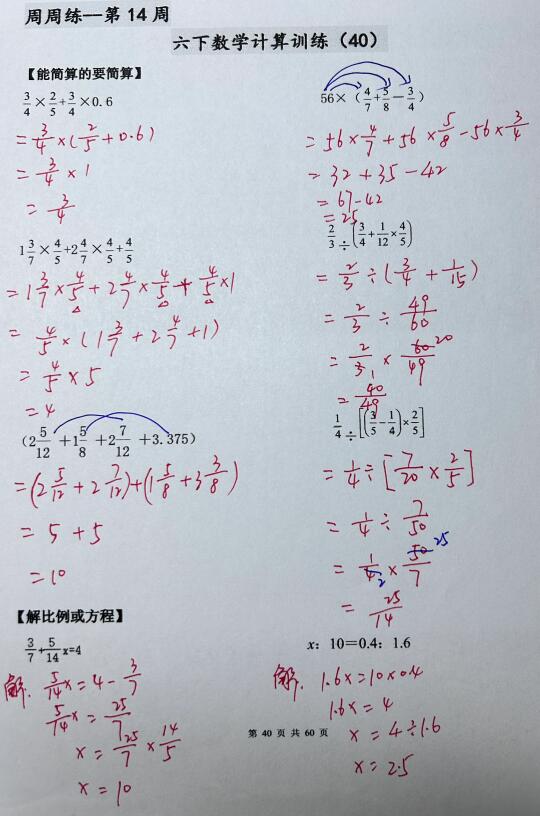 周周练--第 14 周
六下数学计算训练（40）
【能简算的要简算】
3/4×2/5+3/4×0.6
=3/4×(2/5+0.6)
=3/4×1
=3/4
56×（4/7+5/8－3/4）
=56×4/7+56×5/8-56×3/4
=32+35-42
=67-42
=25
1 3/7×4/5+2 4/7×4/5+4/5
=1 3/7×4/5+2 4/7×4/5+4/5×1
=4/5×(1 3/7+2 4/7+1)
=4/5×5
=4
2/3÷(3/4+1/12×4/5)
=2/3÷(3/4+1/15)
=2/3÷49/60
=2/3×60/49 1 20
=40/49
（2 5/12+1 5/8+2 7/12+3.375）
=(2 5/12+2 7/12)+(1 5/8+3 3/8)
=5+5
=10
1/4÷[(3/5-1/4)×2/5]
=1/4÷[7/20×2/5]
=1/4÷7/50
=1/4×50/7 2 25
=25/14
【解比例或方程】
3/7+5/14x=4
解. 5/14x=4-3/7
5/14x=25/7
x=25/7×14/5
x=10
x：10＝0.4：1.6
解. 1.6x=10×0.4
1.6x=4
x=4÷1.6
x=2.5
第 40 页 共 60 页